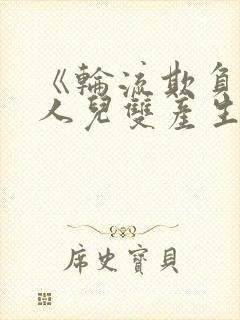 《輪流欺負
人兒雙產生
席史寶貝